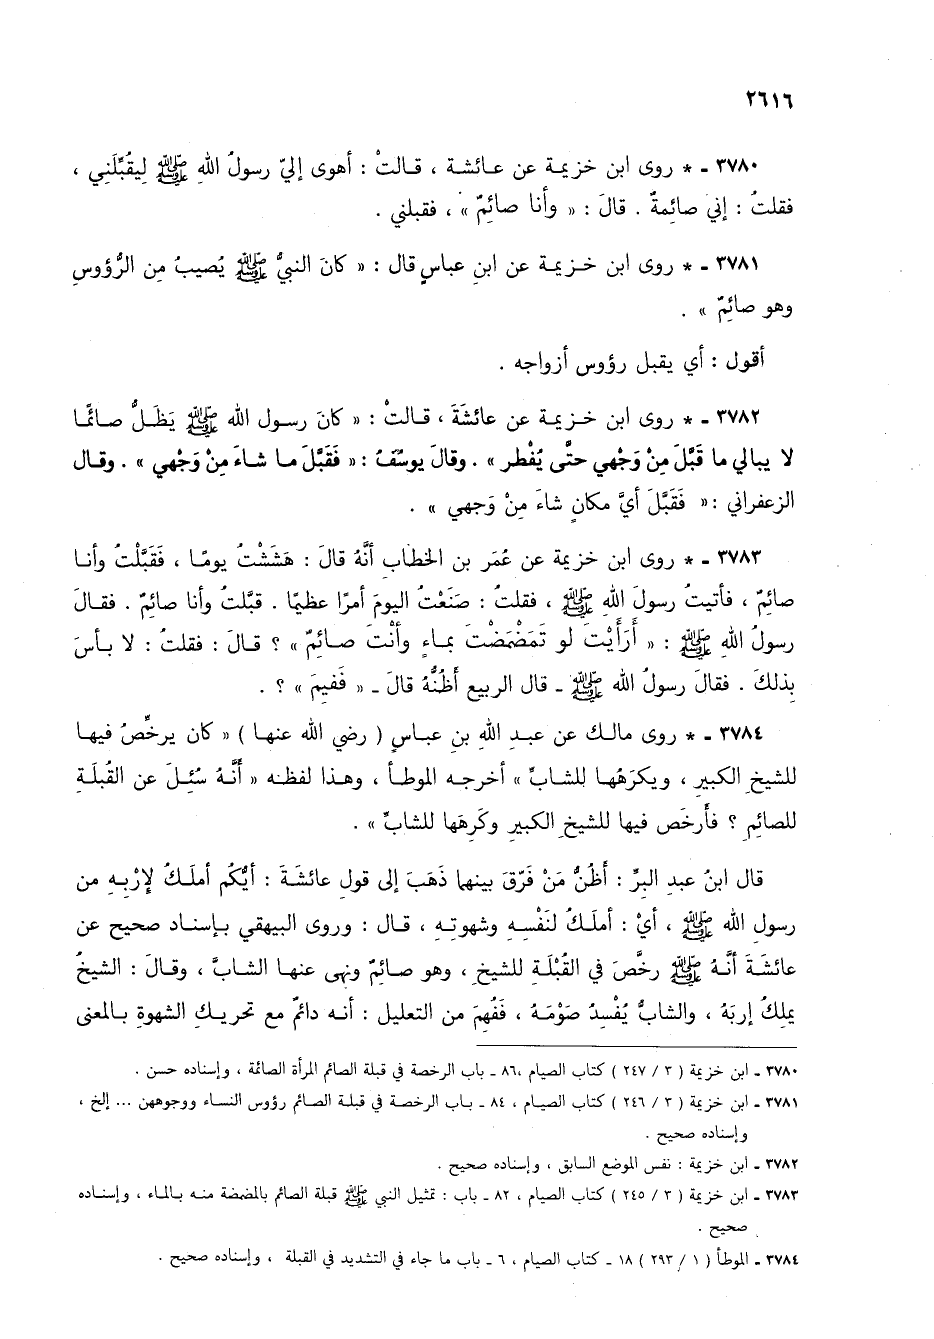 ٢٦١٦
٣٧٨٠ ـ * روى ابن خزيمة عن عائشة ، قالتْ : أهوى إليّ رسولُ اللهِ ﷺ لِيقُبِّلَنِي ،
فقلتُ : إني صائِمةٌ . قالَ : « وأنا صائِمٌ » ، فقبلني .
٣٧٨١ ـ * روى ابن خزيمة عن ابنِ عباسٍ قال : « كانَ النبيُّ ﷺ يُصيبُ مِن الرُّؤوسِ
وهو صائِمٌ » .
أقول : أي يقبل رؤوس أزواجه .
٣٧٨٢ ـ * روى ابن خزيمة عن عائشَةَ ، قالتْ : « كانَ رسول الله ﷺ يَظَلُّ صائمًا
لا يبالي ما قَبَّلَ مِنْ وَجْهي حتَّى يُفْطر » . وقالَ يوسُفُ : « فَقَبَّلَ ما شاءَ مِنْ وَجْهي » . وقال
الزعفراني : « فَقَبَّلَ أيَّ مكانٍ شاءَ مِنْ وَجهي » .
٣٧٨٣ ـ * روى ابن خزيمة عن عُمَر بن الخطابِ أنَّهُ قالَ : هَشَشْتُ يومًا ، فَقَبَّلْتُ وأنا
صائِمٌ ، فأتيتُ رسولَ اللهِ ﷺ ، فقلتُ : صَنَعْتُ اليومَ أمرًا عظيمًا . قبَّلتُ وأنا صائِمٌ . فقالَ
رسولُ اللهِ ﷺ : « أرَأَيْتَ لو تَمَضْمَضْتَ بماءٍ وأنْتَ صائِمٌ » ؟ قالَ : فقلتُ : لا بأسَ
بِذلكَ . فقالَ رسولُ الله ﷺ ـ قال الربيع أظُنُّهُ قالَ ـ « فَفيمَ » ؟ .
٣٧٨٤ ـ * روى مالك عن عبدِ اللهِ بنِ عباسٍ ( رضي الله عنها ) « كان يرخِّصُ فيها
للشيخِ الكبيرِ ، ويكرَهُها للشابِّ » أخرجه الموطأ ، وهذا لفظه « أنَّهُ سُئِلَ عن القُبلَةِ
للصائمِ ؟ فأَرخَص فيها للشيخِ الكبيرِ وكَرِهَها للشابِّ » .
قال ابنُ عبدِ البرِّ : أظُنُّ مَنْ فَرّقَ بينها ذَهَبَ إلى قولِ عائشَةَ : أيُّكم أملَكُ لإرْبِهِ من
رسولِ الله ﷺ ، أيْ : أملَكُ لنَفْسِهِ وشهوتِهِ ، قال : وروى البيهقي بإسناد صحيح عن
عائشَةَ أنَّهُ ﷺ رخَّصَ في القُبْلَةِ للشيخِ ، وهو صائمٌ ونهى عنها الشابَّ ، وقالَ : الشيخُ
يملِكُ إربَهُ ، والشابُّ يُفْسِدُ صَوْمَهُ ، فَفُهِمَ من التعليلِ : أنه دائمٌ مع تحريكِ الشهوةِ بالمعنى
٣٧٨٠ ـ ابن خزيمة ( ٣ / ٢٤٧ ) كتاب الصيام ، ٨٦ ـ باب الرخصة في قبلة الصائم المرأة الصائمة ، وإسناده حسن .
٣٧٨١ ـ ابن خزيمة ( ٣ / ٢٤٦ ) كتاب الصيام ، ٨٤ ـ باب الرخصة في قبلة الصائم رؤوس النساء ووجوههن ... إلخ ،
وإسناده صحيح .
٣٧٨٢ ـ ابن خزيمة : نفس الموضع السابق ، وإسناده صحيح .
٣٧٨٣ ـ ابن خزيمة ( ٣ / ٢٤٥ ) كتاب الصيام ، ٨٢ ـ باب : تمثيل النبي ﷺ قبلة الصائم بالمضمضة منه بالماء ، وإسناده
صحيح .
٣٧٨٤ ـ الموطأ ( ١ / ٢٩٣ ) ١٨ ـ كتاب الصيام ، ٦ ـ باب ما جاء في التشديد في القبلة ، وإسناده صحيح .